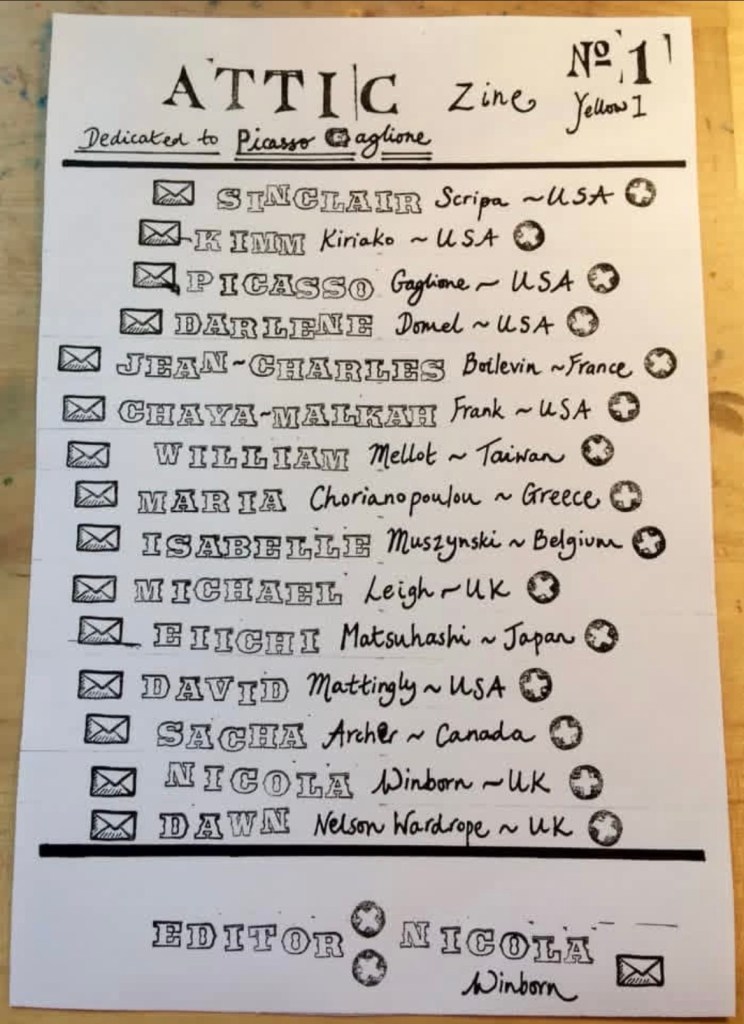 ATTIC Zine Nº 1
Yellow 1
Dedicated to Picasso Gaglione
SINCLAIR Scripa ~ USA
KIMM Kiriako ~ USA
PICASSO Gaglione ~ USA
DARLENE Domel ~ USA
JEAN~CHARLES Botlevin ~ France
CHAYA~MALKAH Frank ~ USA
WILLIAM Mellot ~ Taiwan
MARIA Chorianopoulou ~ Greece
ISABELLE Muszynski ~ Belgium
MICHAEL Leigh ~ UK
EIICHI Matsuhashi ~ Japan
DAVID Mattingly ~ USA
SACHA Archer ~ Canada
NICOLA Winborn ~ UK
DAWN Nelson Wardrope ~ UK
EDITOR NICOLA
Winborn